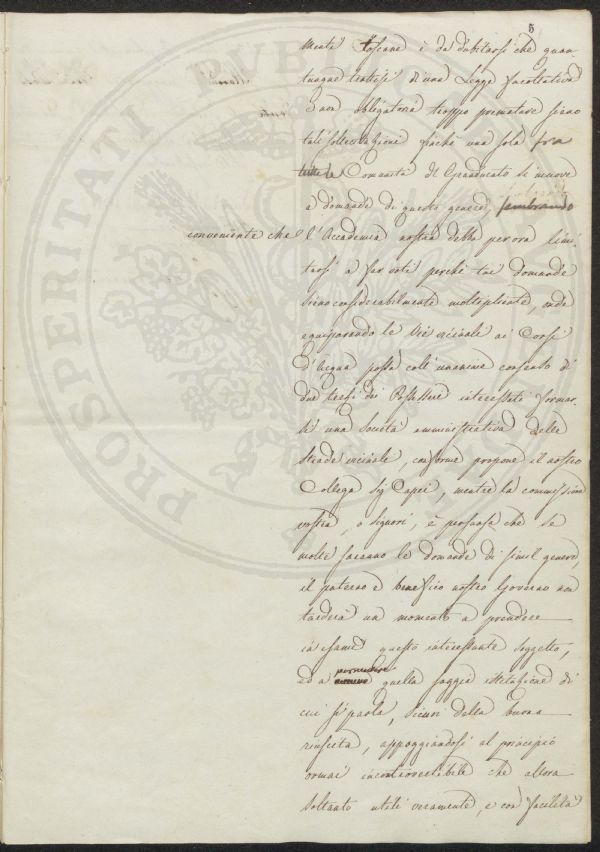 5
mente Toscane è da dubitarsi che quan
tunque trattisi di una Legge facoltativa
e non obbligatoria troppo premature sieno
tali sollecitazioni finchè una sola fra
tutte le Comunità del Granducato si muove
a domande di questo genere, sembrando
conveniente che l'Accademia nostra debba per ora limi
tarsi a far voti perchè tai domande
sieno considerabilmente moltiplicate, onde
equiparando le Vie vicinali ai Corsi
d'Acqua possa coll'unanime consenso di
due terzi dei Possessori interessati formar
si una società amministrativa delle
strade vicinali, conforme propone il nostro
Collega Sig Capei, mentre la commissione
vostra, o Signori, è persuasa che se
molte saranno le domande di simil genere,
il paterno e benefico nostro Governo non
tarderà un momento a prendere
in esame questo interessante soggetto,
ed a permettere quella saggia istituzione di
cui si parla, sicuri della buona
riuscita, appoggiandosi al principio
ormai incontrovertibile che allora
soltanto utili veramente, e con facilità
PROSPERITATI PUBLICAE